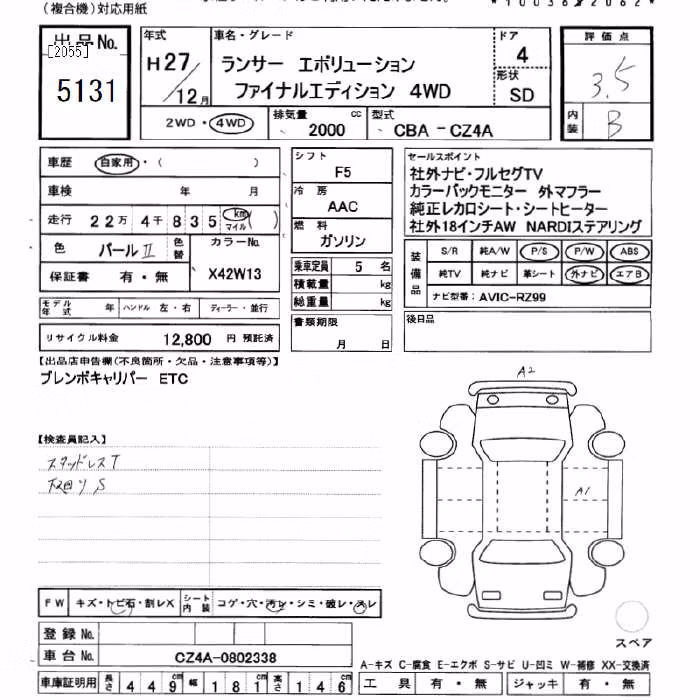 (複合機)対応用紙
出品No.
[2055]
5131
年式
H27/12月
車名・グレード
ランサー エボリューション
ファイナルエディション 4WD
ドア
4
形状
SD
評価点
3.5
内装
B
2WD・4WD
排気量
2000 cc
型式
CBA-CZ4A
車歴 自家用・( )
車検 年 月
走行 22万4千835 km マイル ( )
色 パールII 色替
カラーNo. X42W13
保証書 有・無
モデル年式 年 ハンドル 左・右 ディーラー・並行
リサイクル料金 12,800 円 預託済
シフト
F5
冷房
AAC
燃料
ガソリン
乗車定員 5 名
積載量 kg
総重量 kg
書類期限
月 日
セールスポイント
社外ナビ・フルセグTV
カラーバックモニター 外マフラー
純正レカロシート・シートヒーター
社外18インチAW NARDIステアリング
装備品
S/R 純A/W P/S P/W ABS
純TV 純ナビ 革シート 外ナビ エアB
ナビ型番: AVIC-RZ99
後日品
【出品店申告欄(不良箇所・欠品・注意事項等)】
ブレンボキャリパー ETC
【検査員記入】
スタッドレスT
下廻りS
A2
A1
スペア
FW キズ・トビ石・割レX
シート内装 コゲ・穴・汚レ・シミ・破レ・スレ
登録No.
車台No. CZ4A-0802338
車庫証明用 長さ 449cm 幅 181cm 高さ 146cm
A-キズ C-腐食 E-エクボ S-サビ U-凹ミ W-補修 XX-交換済
工具 有・無 ジャッキ 有・無